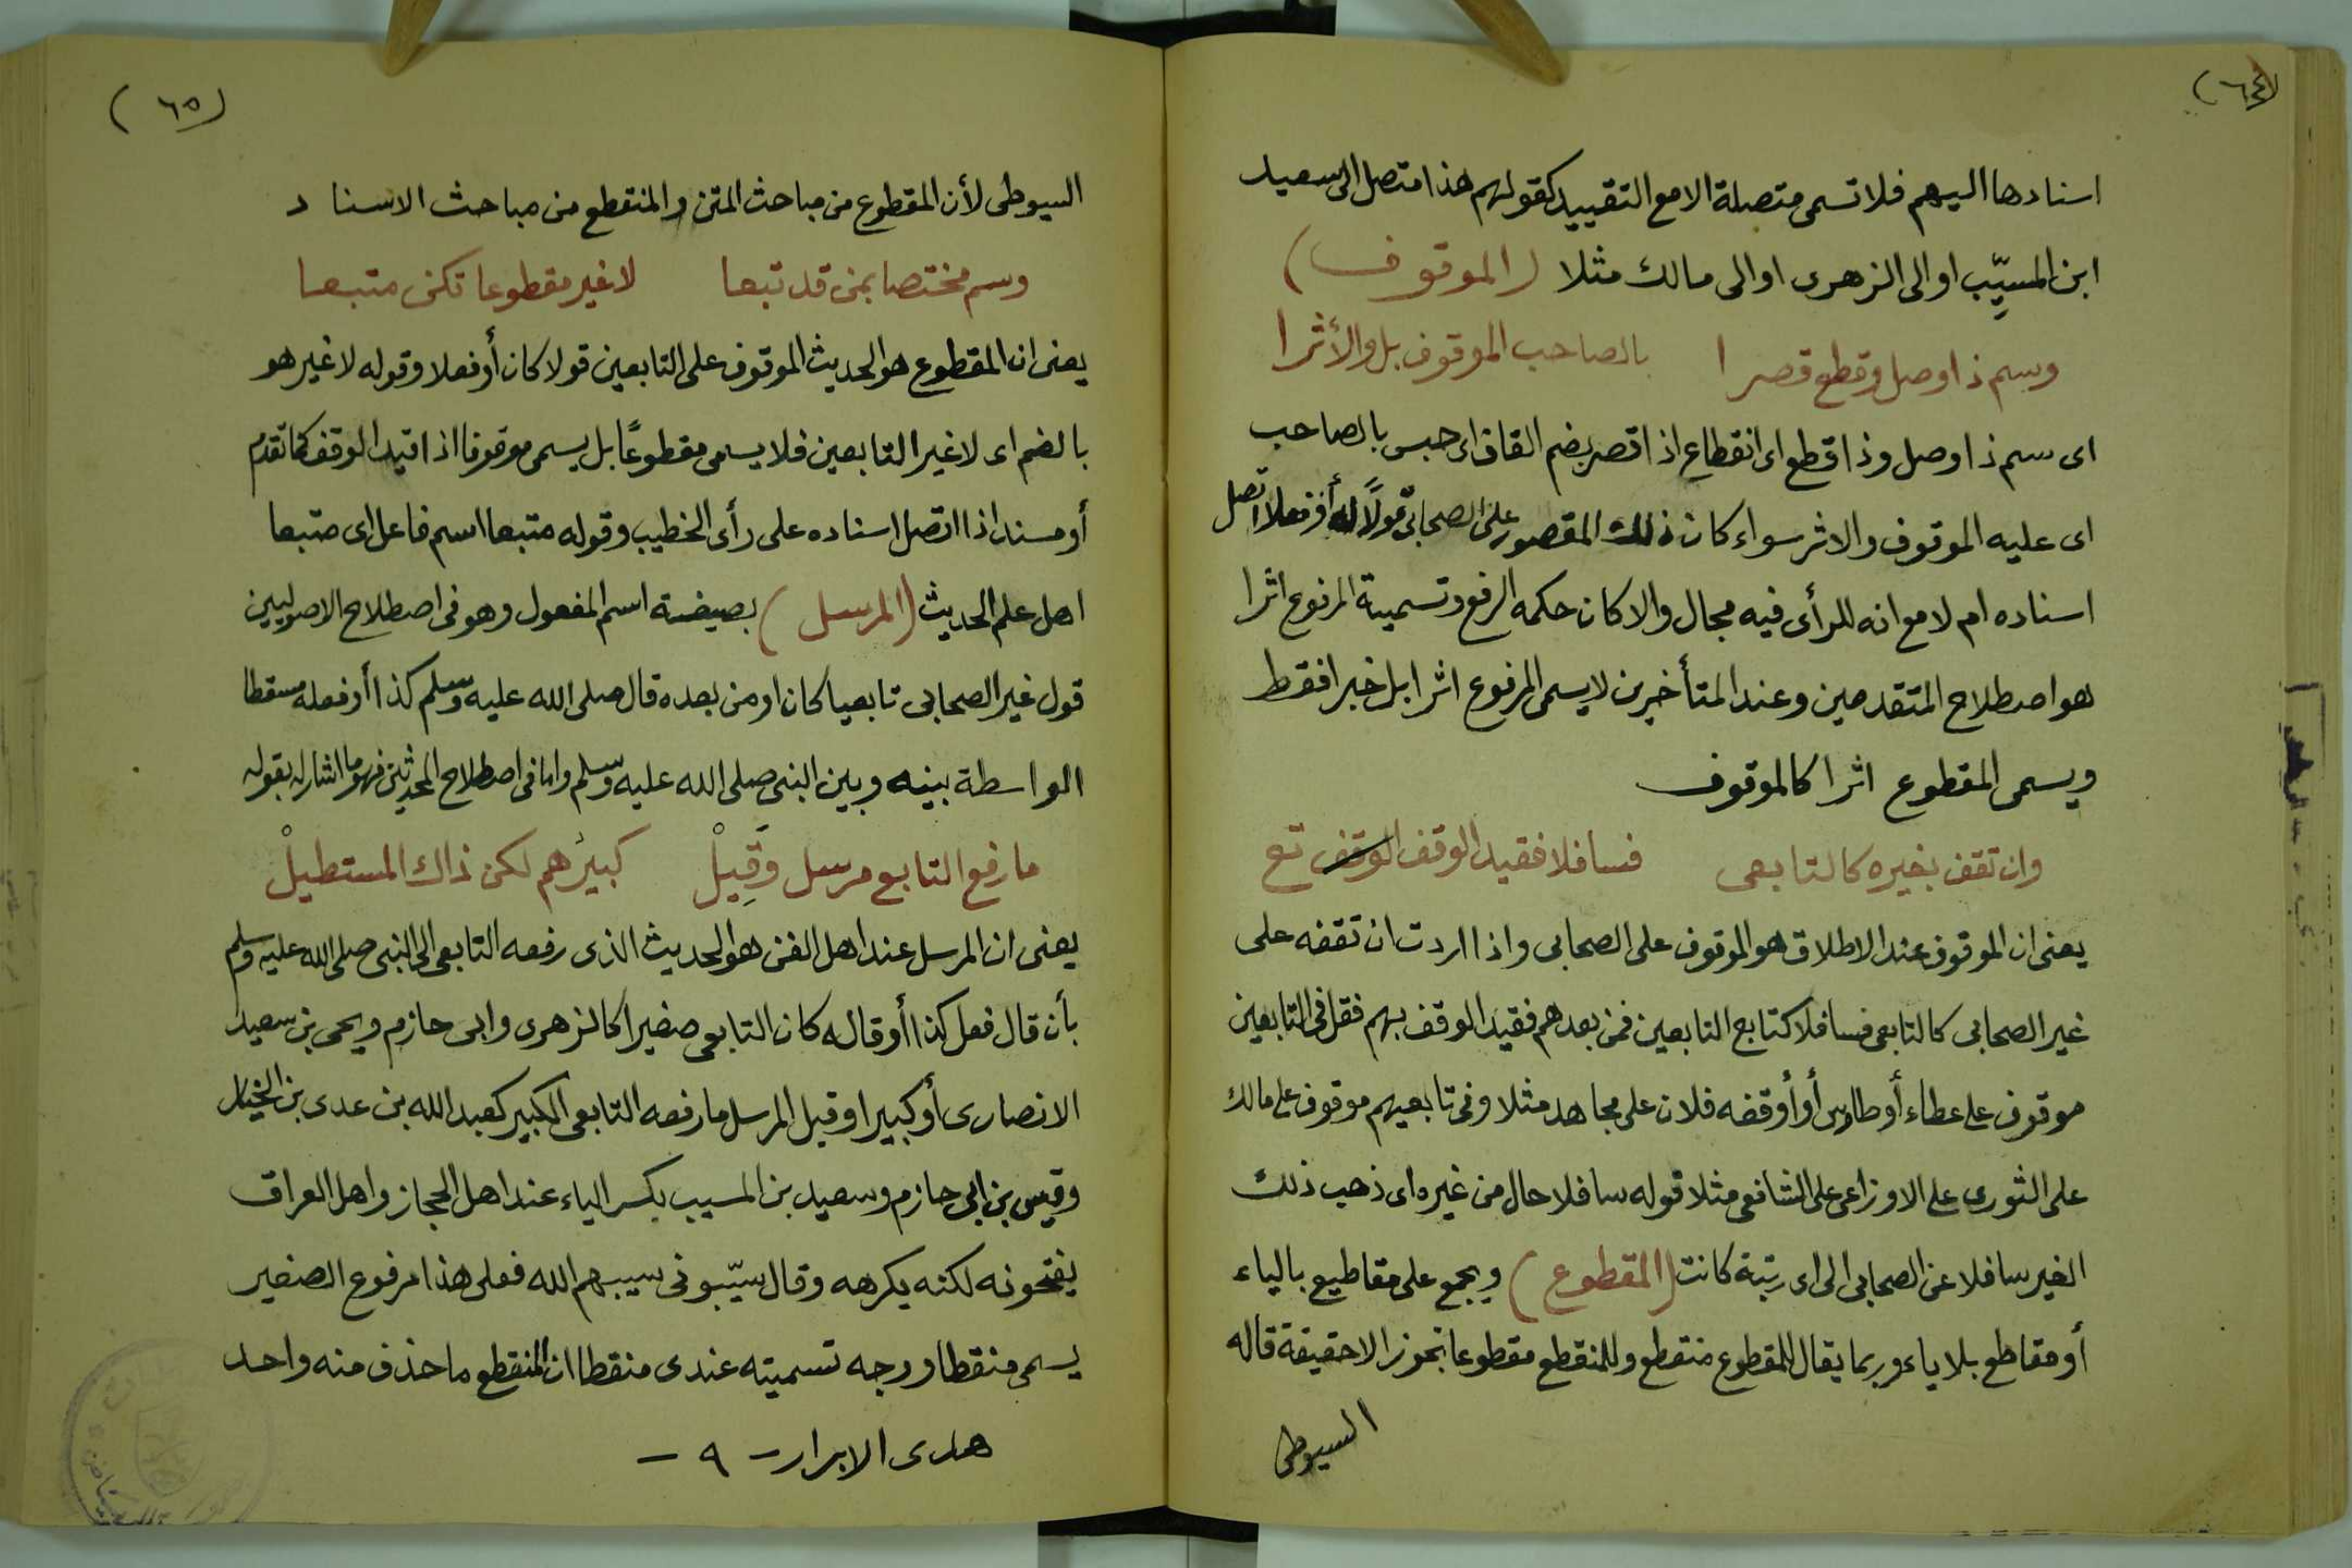 (٦٤)
اسنادها اليهم فلا تسمى متصلة الا مع التقييد كقولهم هذا متصل الى سعيد
ابن المسيّب او الى الزهرى او الى مالك مثلا (الموقوف)
وسم ذا وصل وقطع قصرا بالصاحب الموقوف بل والأثرا
اى سم ذا وصل وذا قطع اى انقطاع اذا قصر بضم القاف اى حبس بالصاحب
اى عليه الموقوف والاثر سواء كان ذلك المقصور على الصحابى قولاً له أو فعلا اتصل
اسناده ام لا مع انه للرأى فيه مجال والا كان حكمه الرفع وتسمية المرفوع اثرا
هو اصطلاح المتقدمين وعند المتأخرين لا يسمى المرفوع اثرا بل خبرا فقط
ويسمى المقطوع اثرا كالموقوف
وان تقف بغيره كالتابعى فسافلا فقيد الوقف الوقف تع
يعنى ان الموقوف عند الاطلاق هو الموقوف على الصحابى واذا اردت ان تقفه على
غير الصحابى كالتابعى فسافلا كتابع التابعين فمن بعدهم فقيد الوقف بهم فقل فى التابعين
موقوف على عطاء أو طاوس أو أوقفه فلان على مجاهد مثلا وفى تابعيهم موقوف على مالك
على الثورى على الاوزاعى على الشافعى مثلا قوله سافلا حال من غيره اى ذهب ذلك
الغير سافلا عن الصحابى الى اى رتبة كانت (المقطوع) ويجمع على مقاطيع بالياء
أو مقاطع بلا ياء وربما يقال للمقطوع منقطع وللمنقطع مقطوعا تجوزا لا حقيقة قاله
السيوطى
(٦٥)
السيوطى لأن المقطوع من مباحث المتن والمنقطع من مباحث الاسناد
وسم مختصا بمن قد تبعا لا غير مقطوعا تكن متبعا
يعنى ان المقطوع هو الحديث الموقوف على التابعين قولا كان أو فعلا وقوله لا غير هو
بالضم اى لا غير التابعين فلا يسمى مقطوعًا بل يسمى موقوفا اذا قيد الوقف كما تقدم
أو مسندا اذا اتصل اسناده على رأى الخطيب وقوله متبعا اسم فاعل اى متبعا
اهل علم الحديث (المرسل) بصيغة اسم المفعول وهو فى اصطلاح الاصوليين
قول غير الصحابى تابعيا كان او من بعده قال صلى الله عليه وسلم كذا أو فعله مسقطا
الواسطة بينه وبين النبى صلى الله عليه وسلم واما فى اصطلاح المحدثين فهو ما اشار له بقوله
ما رفع التابع مرسل وَقِيلْ كبيرُهم لكن ذاك المستطيلْ
يعنى ان المرسل عند اهل الفن هو الحديث الذى رفعه التابعى الى النبى صلى الله عليه وسلم
بأن قال فعل كذا أو قاله كان التابعى صغيرا كالزهرى وابى حازم ويحى بن سعيد
الانصارى أو كبيرا وقيل المرسل ما رفعه التابعى الكبير كعبد الله بن عدى بن الخيار
وقيس بن ابى حازم وسعيد بن المسيب بكسر الياء عند اهل الحجاز واهل العراق
يفتحونه لكنه يكرهه وقال سيّبونى سيبهم الله فعلى هذا مرفوع الصغير
يسمى منقطا ووجه تسميته عندى منقطا ان المنقطع ما حذف منه واحد
هدى الابرار - ٩ -